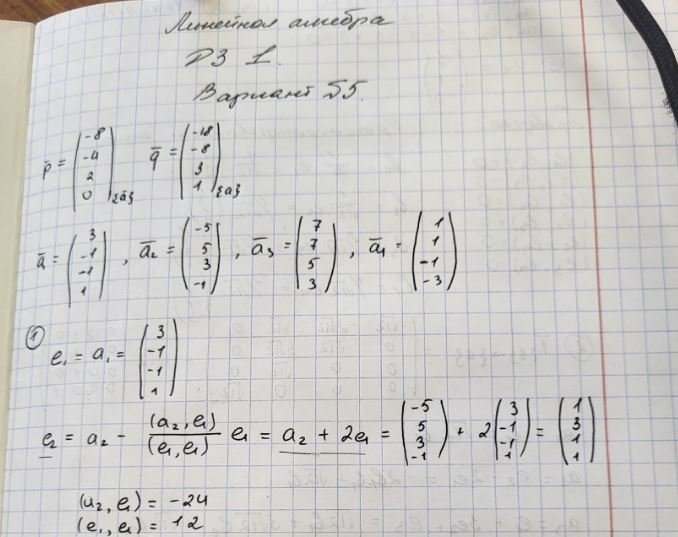 Линейная алгебра
ДЗ 1.
Вариант 55.
p̄ = (-8 -4 2 0){a} q̄ = (-18 -8 3 1){a}
ā₁ = (3 -1 -1 1), ā₂ = (-5 5 3 -1), ā₃ = (7 7 5 3), ā₄ = (1 1 -1 -3)
① e₁ = a₁ = (3 -1 -1 1)
e₂ = a₂ - (a₂, e₁)/(e₁, e₁) e₁ = a₂ + 2e₁ = (-5 5 3 -1) + 2(3 -1 -1 1) = (1 3 1 1)
(a₂, e₁) = -24
(e₁, e₁) = 12